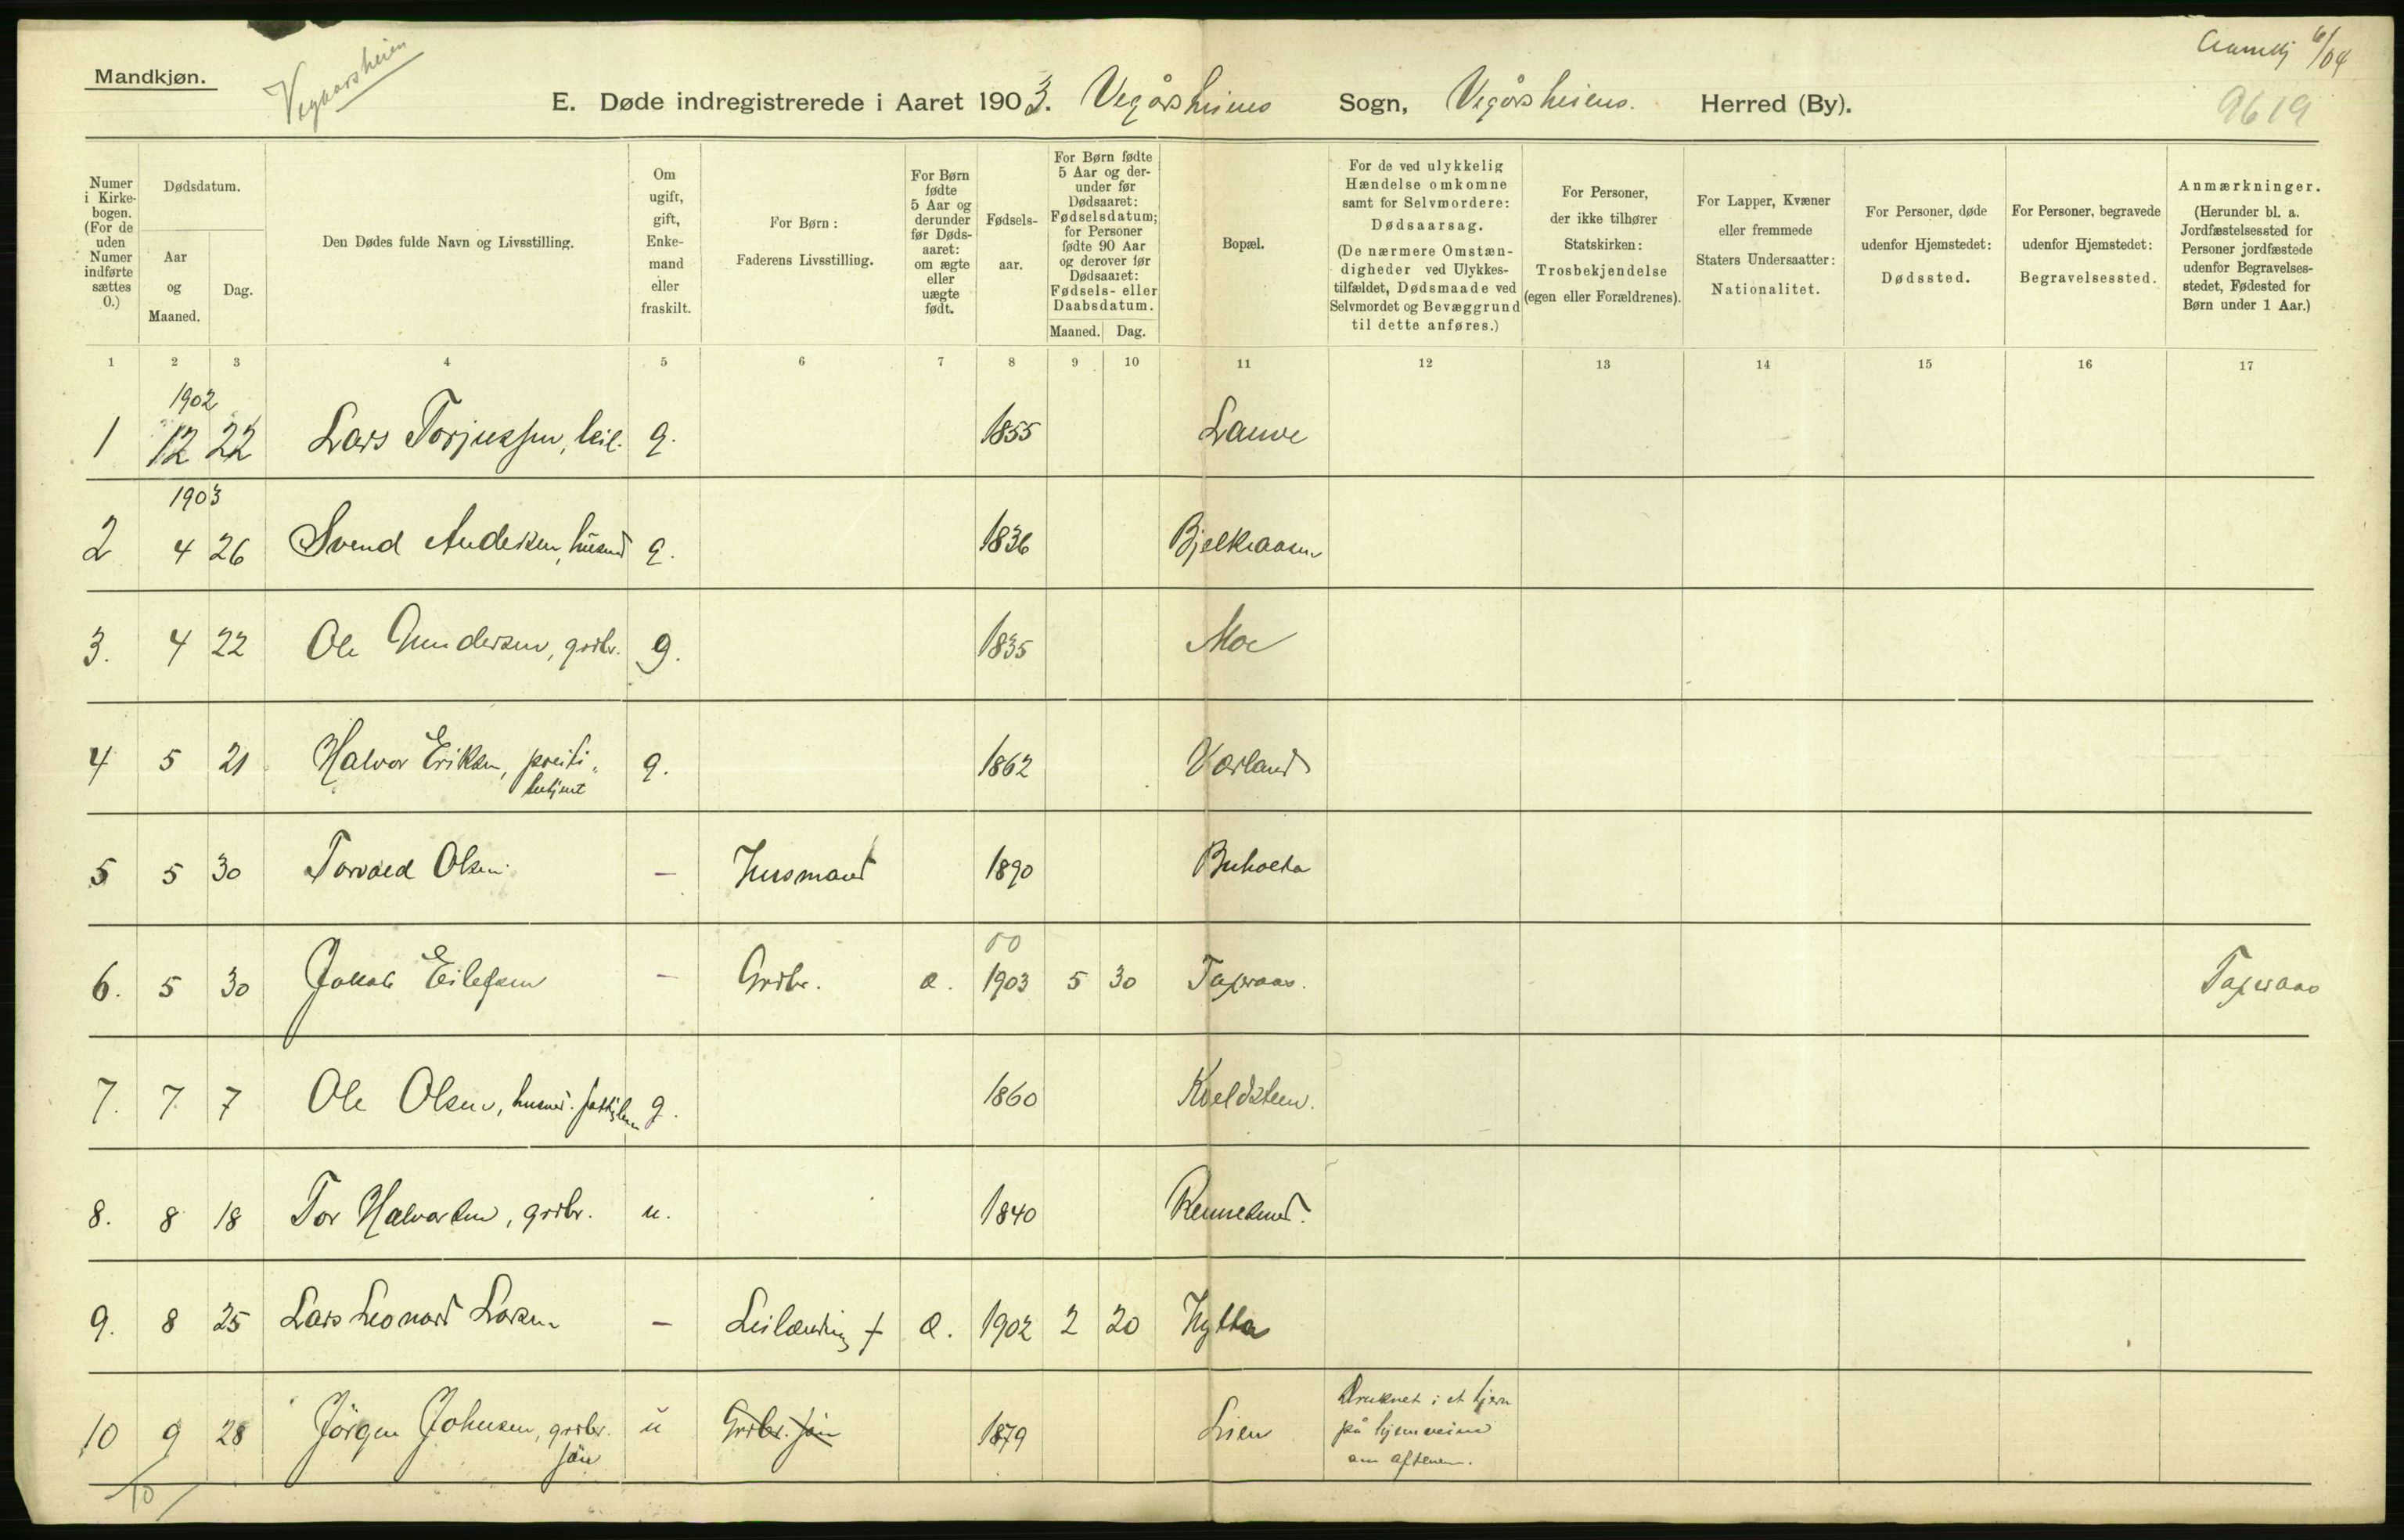 Mandkjøn.
Vegaarsheien
6/04
9619
E. Døde indregistrerede i Aaret 1903. Vegårsheiens Sogn, Vegårsheiens. Herred (By).
Numer i Kirkebogen. (For de uden Numer indførte sættes 0.)
Dødsdatum.
Aar og Maaned.
Dag.
Den Dødes fulde Navn og Livsstilling.
Om ugift, gift, Enkemand eller fraskilt.
For Børn:
Faderens Livsstilling.
For Børn fødte 5 Aar og derunder før Dødsaaret: om ægte eller uægte født.
Fødselsaar.
For Børn fødte 5 Aar og derunder før Dødsaaret: Fødselsdatum; for Personer fødte 90 Aar og derover før Dødsaaret: Fødsels- eller Daabsdatum.
Maaned. Dag.
Bopæl.
For de ved ulykkelig Hændelse omkomne samt for Selvmordere: Dødsaarsag.
(De nærmere Omstændigheder ved Ulykkestilfældet, Dødsmaade ved Selvmordet og Bevæggrund til dette anføres.)
For Personer, der ikke tilhører Statskirken: Trosbekjendelse (egen eller Forældrenes).
For Lapper, Kvæner eller fremmede Staters Undersaatter: Nationalitet.
For Personer, døde udenfor Hjemstedet: Dødssted.
For Personer, begravede udenfor Hjemstedet: Begravelsessted.
Anmærkninger.
(Herunder bl. a. Jordfæstelsessted for Personer jordfæstede udenfor Begravelsesstedet, Fødested for Børn under 1 Aar.)
1 2 3 4 5 6 7 8 9 10 11 12 13 14 15 16 17
1902
1 12 22 Lars Torjussen, leil. g. 1855 Lauve
1903
2 4 26 Svend Andersen, husmd g. 1836 Bjelkaasen
3. 4 22 Ole Gundersen, grdbr. g. 1835 Moe
4 5 21 Halvor Eriksen, g. 1862 Værland
5 5 30 Torvald Olsen – Husmand 1890
00
6. 5 30 Jakob Eilefsen – Grdbr. æ. 1903 5 30
7. 7 7 Ole Olsen, husmd. g. 1860 Kveldsteen.
8. 8 18 Tor Halvorsen, grdbr. u. 1840
9. 8 25 Lars Leonard Larsen – Leilænding + æ. 1902 2 20 Hytta
10 9 28 Jörgen Johnsen, grdbr. u Grdbr. sön 1879 Lien Druknet i et tjern
sön på hjemveien
om aftenen.
10